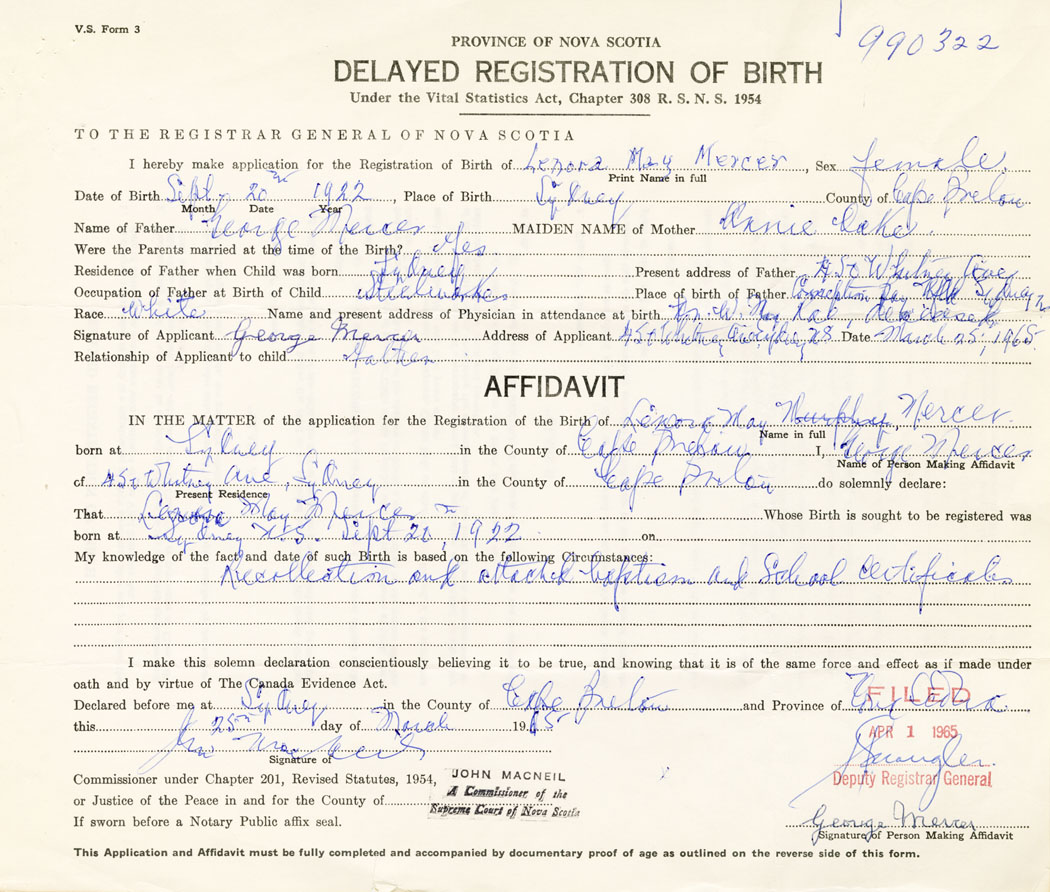 V.S. Form 3
990322
PROVINCE OF NOVA SCOTIA
DELAYED REGISTRATION OF BIRTH
Under the Vital Statistics Act, Chapter 308 R. S. N. S. 1954
TO THE REGISTRAR GENERAL OF NOVA SCOTIA
I hereby make application for the Registration of Birth of Lenora May Mercer, Sex female.
Print Name in full
Date of Birth Sept. 20th 1922, Place of Birth Sydney County of Cape Breton
Month Date Year
Name of Father George Mercer MAIDEN NAME of Mother Annie Oake.
Were the Parents married at the time of the Birth? Yes
Residence of Father when Child was born Sydney Present address of Father Whitney Ave Sydney
Occupation of Father at Birth of Child Steelworker Place of birth of Father Conception Bay Nfld
Race White Name and present address of Physician in attendance at birth Deceased
Signature of Applicant George Mercer Address of Applicant Whitney Ave Sydney Date March 25, 1965
Relationship of Applicant to child Father
AFFIDAVIT
IN THE MATTER of the application for the Registration of the Birth of Lenora May Murphy, Mercer.
Name in full
born at Sydney in the County of Cape Breton I, George Mercer
Name of Person Making Affidavit
of Whitney Ave, Sydney in the County of Cape Breton do solemnly declare:
Present Residence
That Lenora May Mercer Whose Birth is sought to be registered was
born at Sydney N.S. Sept 20, 1922 on
My knowledge of the fact and date of such Birth is based on the following Circumstances:
Recollection and attached baptism and School certificates
I make this solemn declaration conscientiously believing it to be true, and knowing that it is of the same force and effect as if made under
oath and by virtue of The Canada Evidence Act.
Declared before me at Sydney in the County of Cape Breton and Province of Nova Scotia
FILED
this 25th day of March 1965
APR 1 1965
Jno MacNeil
Signature of
Commissioner under Chapter 201, Revised Statutes, 1954,
JOHN MACNEIL
Deputy Registrar General
A Commissioner of the
or Justice of the Peace in and for the County of
Supreme Court of Nova Scotia
George Mercer
If sworn before a Notary Public affix seal.
Signature of Person Making Affidavit
This Application and Affidavit must be fully completed and accompanied by documentary proof of age as outlined on the reverse side of this form.